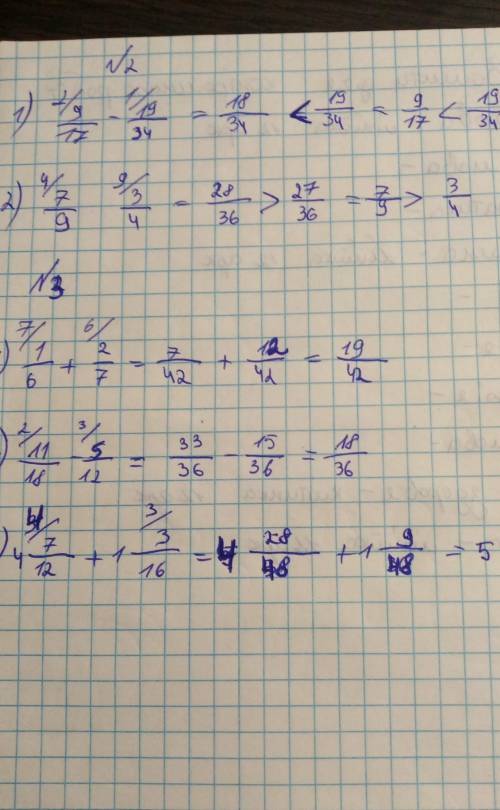 №2
1) ²/9/17 - ¹/19/34 = 18/34 < 19/34 = 9/17 < 19/34
2) ⁴/7/9 ⁹/3/4 = 28/36 > 27/36 = 7/9 > 3/4
№3
) ⁷/1/6 + ⁶/2/7 = 7/42 + 12/42 = 19/42
) ²/11/18 ³/5/12 = 33/36 - 15/36 = 18/36
) 4 ⁴/7/12 + 1 ³/3/16 = 4 28/48 + 1 9/48 = 5